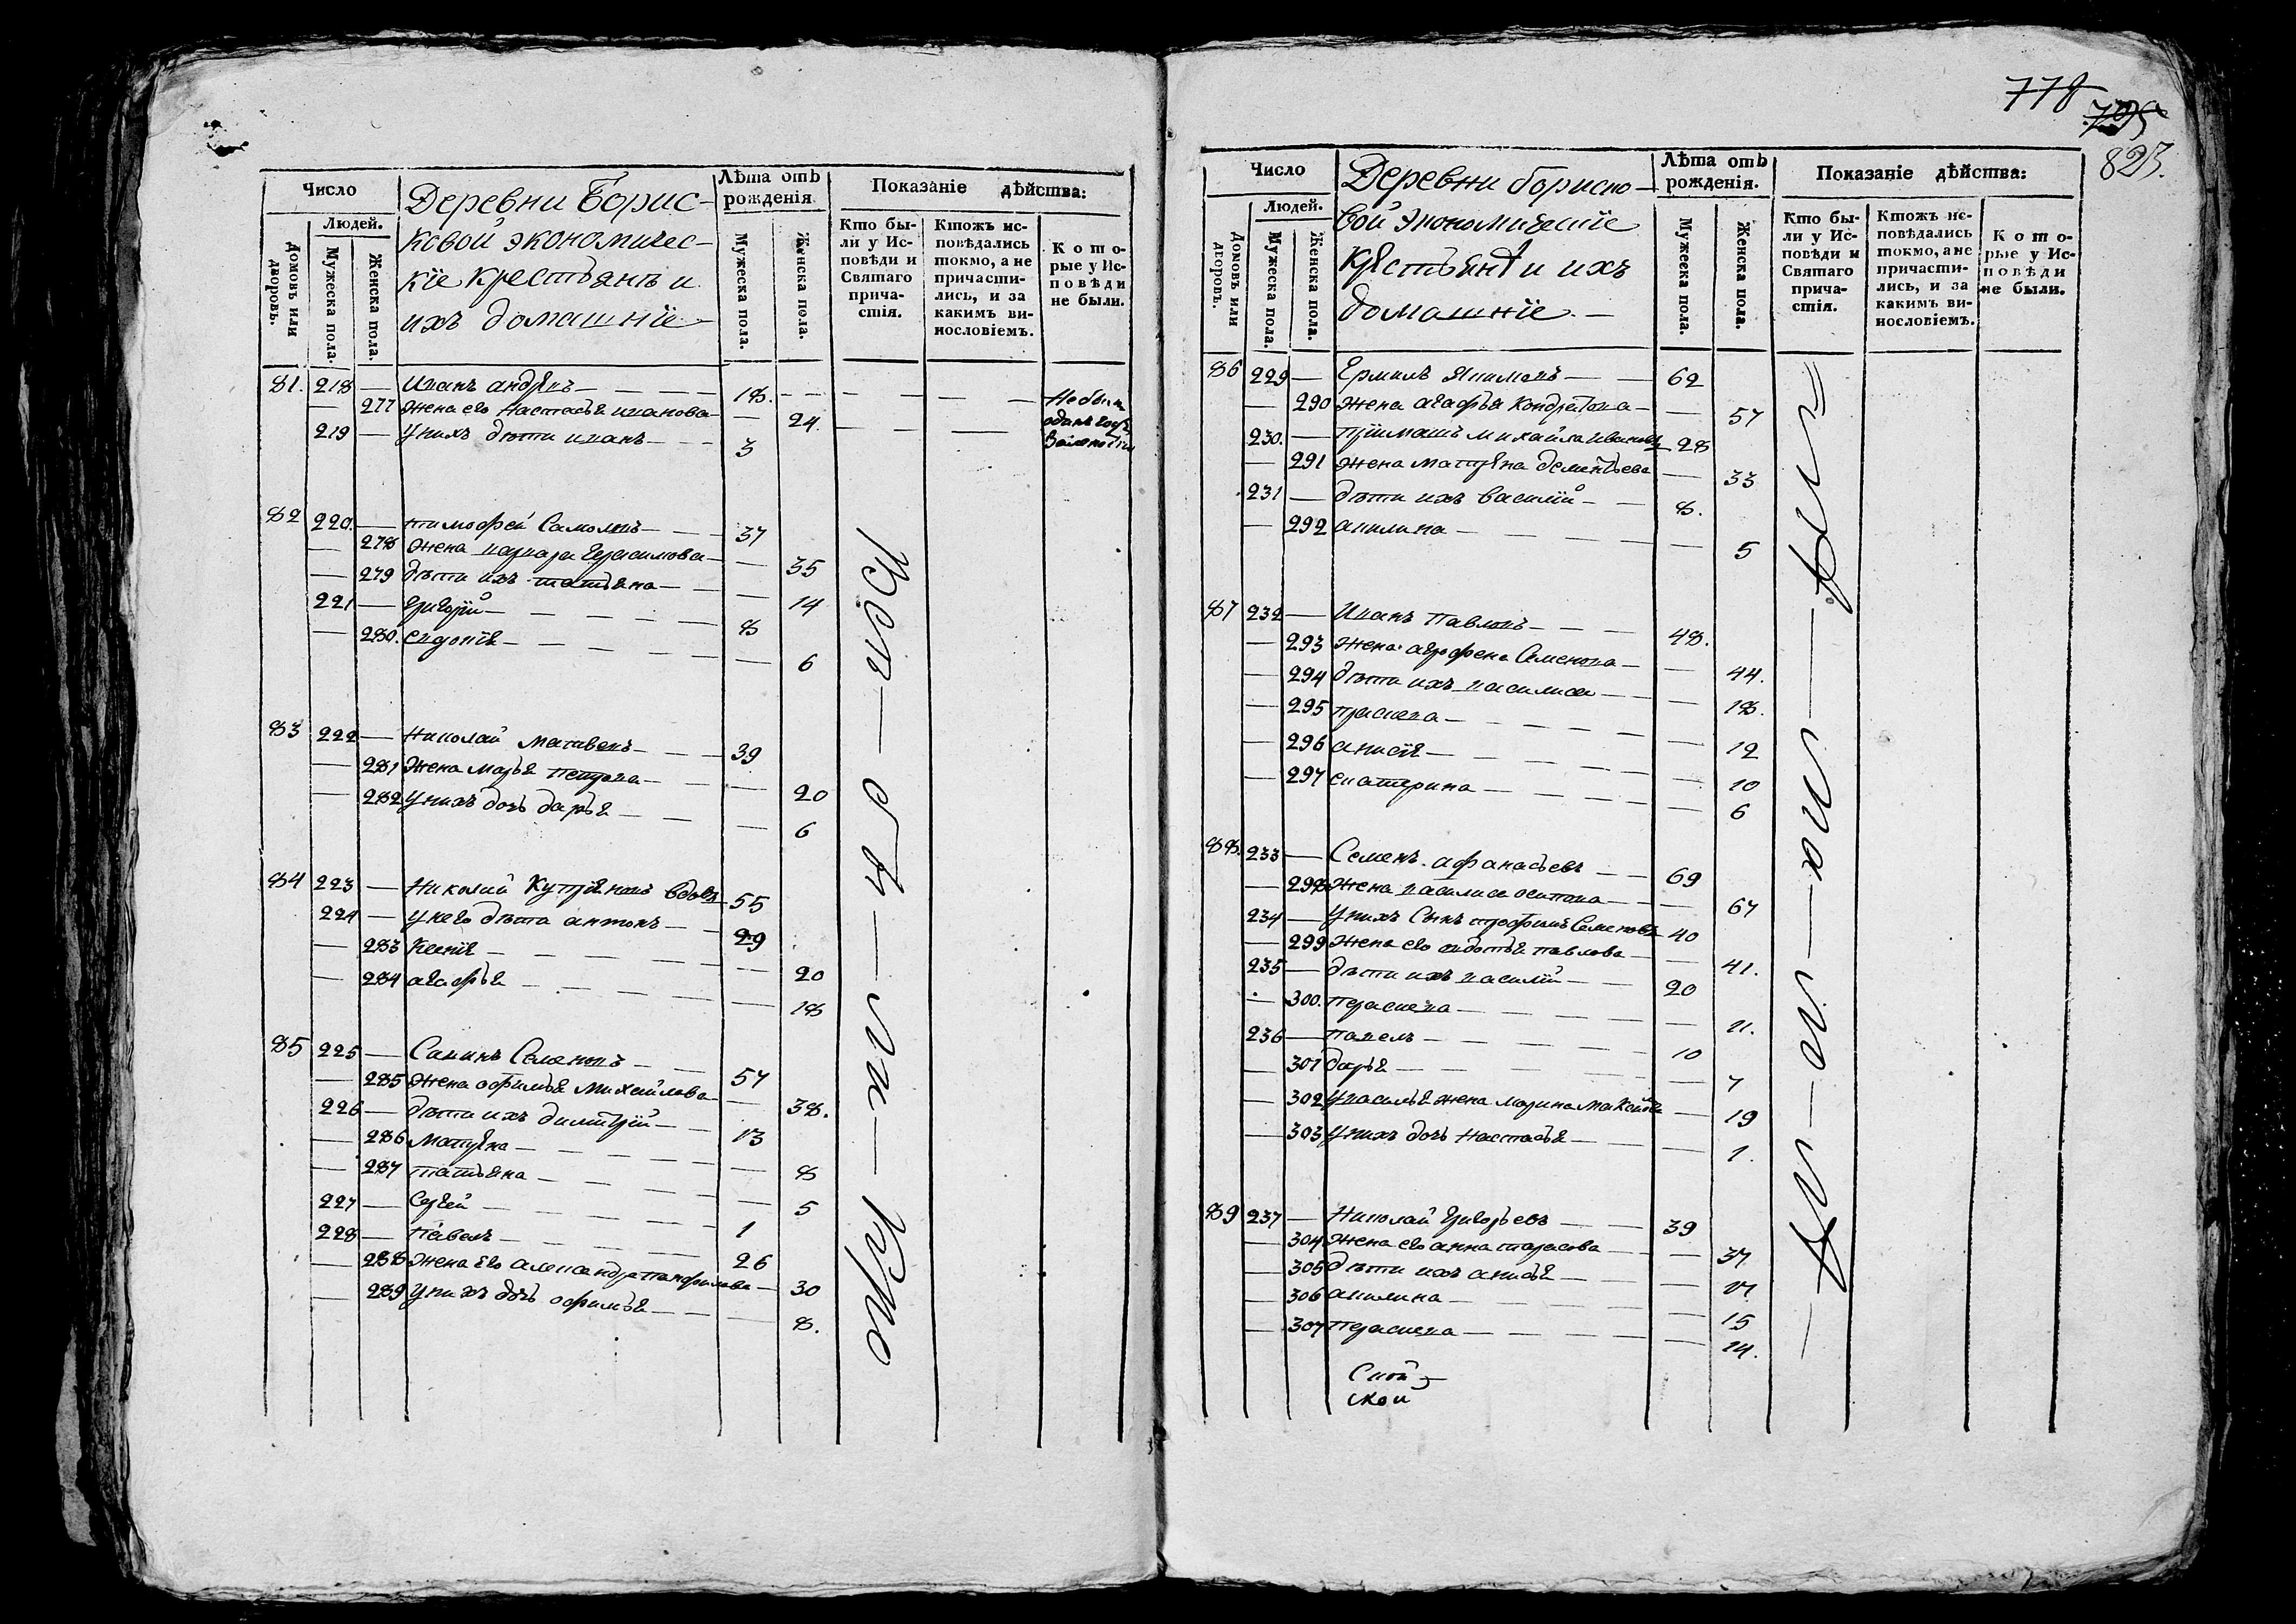 778
795
823.
Число
Деревни Борис-
ковой экономичес-
кіе крестьянъ и
ихъ домашніе
Лѣта отъ
рожденія
Показаніе дѣйства:
Людей.
Домовъ или
дворовъ.
Мужеска пола.
Женска пола.
Мужеска пола.
Женска пола.
Кто бы-
ли у Ис-
повѣди и
Святаго
прича-
стія.
Ктожъ ис-
повѣдались
токмо, а не
причасти-
лись, и за
какимъ ви-
нословіемъ.
Кото-
рые у Ис-
повѣди
не были.
81. 218 — Иванъ андреевъ — 18. — Не были
— 277 Жена его Настасья иванова — 24.
219 — У нихъ дѣти иванъ — 3
82 220. — тимофей Самоловъ — 37
— 278 Жена варвара Герасимова — 35
— 279 дѣти ихъ татьяна — 14
221 — григорій — 8
— 280. евдокія — 6
83 222 — Николай Матвеевъ — 39
— 281 Жена Марья Петрова — 20
— 282 У нихъ дочь дарья — 6
84 223 — Николай Куприяновъ вдовъ 55
224 — У него дѣти антонъ — 29
— 283 Ксенія — 20
— 284 агафья — 18
85 225 — Савинъ Семеновъ — 57
— 285 Жена офимья Михайлова — 38.
226 — дѣти ихъ димитрій — 13
— 286 матрена — 8
— 287 татьяна — 5
227 — Сергей — 1
228 — Павелъ — 26
— 288 Жена его александра панфилова — 30
— 289 У нихъ дочь офимья — 8.
Число
Деревни бориско-
вой экономическіе
крестьянѣ и ихъ
домашніе. —
Лѣта отъ
рожденія.
Показаніе дѣйства:
Людей.
Домовъ или
дворовъ.
Мужеска пола.
Женска пола.
Мужеска пола.
Женска пола.
Кто бы-
ли у Ис-
повѣди и
Святаго
прича-
стія.
Ктожъ ис-
повѣдались
токмо, а не
причасти-
лись, и за
какимъ ви-
нословіемъ.
Кото-
рые у Ис-
повѣди
не были.
86 229 — Ермилъ Якимовъ — 62
— 290 Жена агафья Кондратова — 57
230. — пріимашъ Михайла Ивановъ 28
— 291 Жена матрена дементьева — 33
231 — дѣти ихъ василій — 8.
— 292 акилина — 5
87 232 — Иванъ Павловъ — 48.
— 293 Жена аграфена Семенова — 44.
— 294 дѣти ихъ василиса — 18.
— 295 прасковья — 12
— 296 анисія — 10
— 297 екатерина — 6
88. 233 — Семенъ афанасьевъ — 69
— 298 Жена василиса осипова — 67
234 — У нихъ Сынъ трофимъ Семеновъ 40
— 299 Жена его авдотья павлова — 41.
235 — дѣти ихъ василій — 20
— 300. Прасковья — 11.
236 — павелъ — 10
— 301 дарья — 7
— 302 У василья жена марина — 19
— 303 У нихъ дочь Настасья — 1.
89 237 — Николай Григорьевъ — 39
— 304 Жена его анна тарасова — 37
— 305 дѣти ихъ анисья — 17
— 306 акилина — 15
— 307 Прасковья — 14.